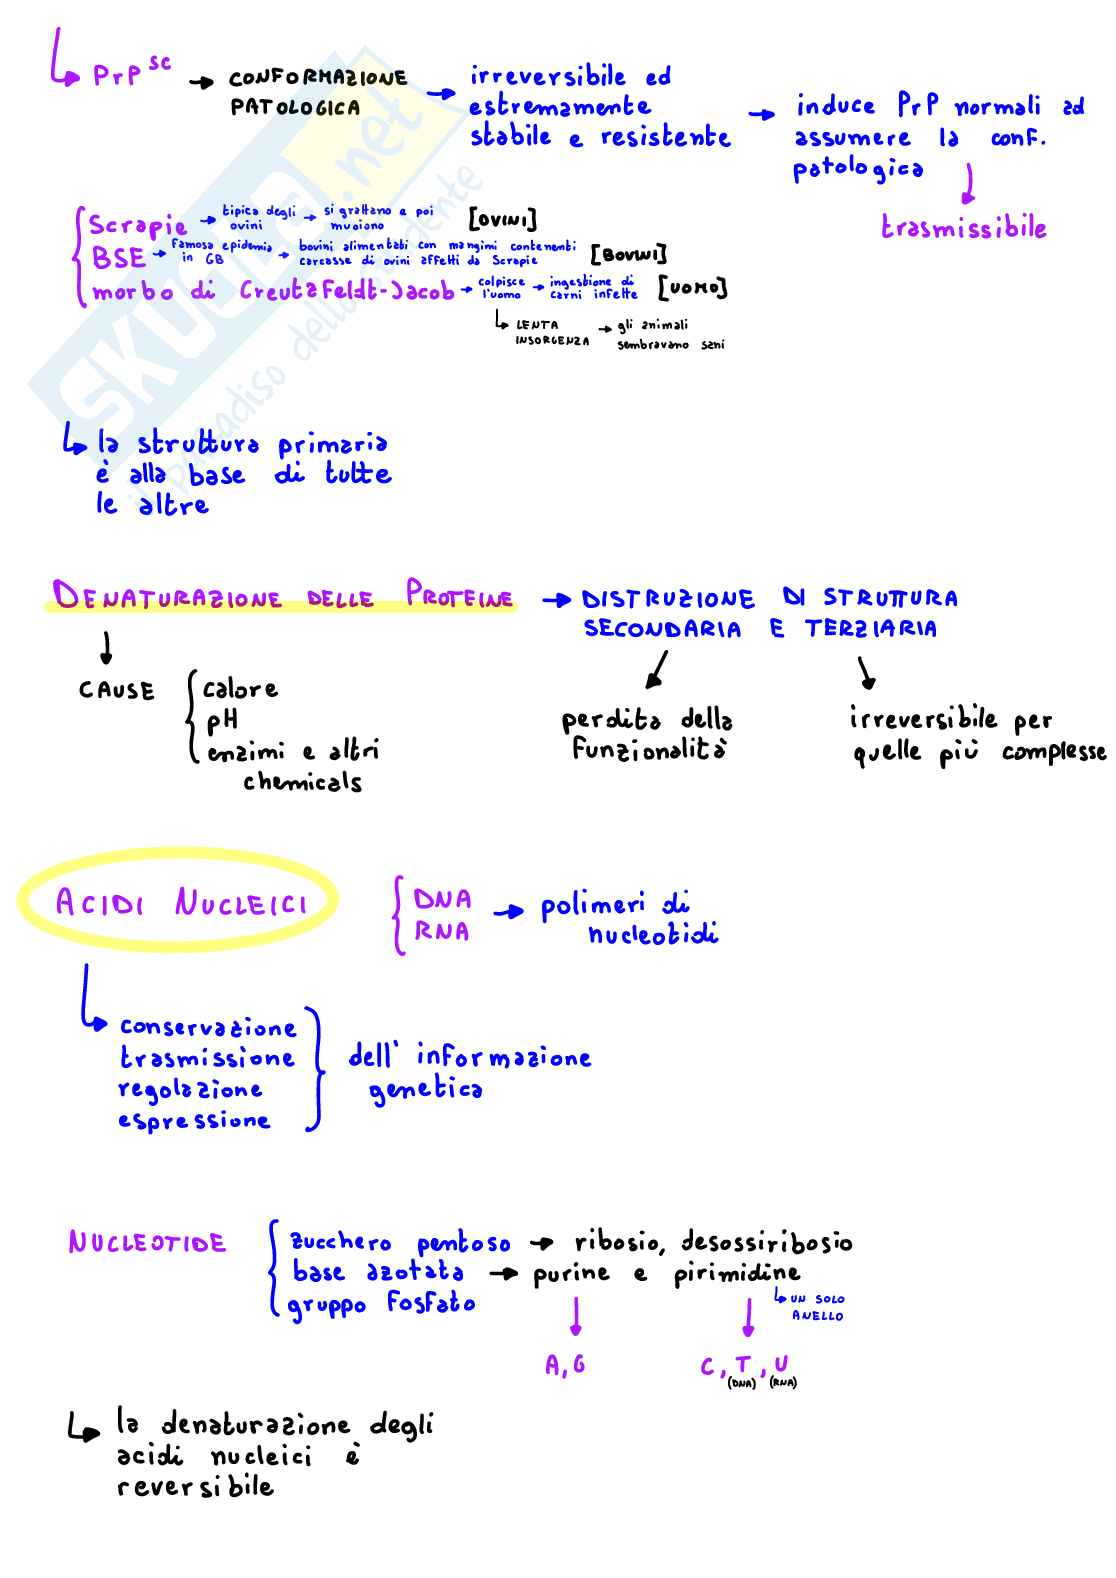 PrP sc → CONFORMAZIONE PATOLOGICA → irreversibile ed estremamente stabile e resistente → induce PrP normali ad assumere la conf. patologica
trasmissibile
Scrapie → tipica degli ovini → si grattano e poi muoiono [OVINI]
BSE → famosa epidemia in GB → bovini alimentati con mangimi contenenti carcasse di ovini affetti da Scrapie [BOVINI]
morbo di Creutzfeldt-Jacob → colpisce l'uomo → ingestione di carni infette [UOMO]
LENTA INSORGENZA → gli animali sembravano sani
la struttura primaria
è alla base di tutte
le altre
DENATURAZIONE DELLE PROTEINE → DISTRUZIONE DI STRUTTURA
SECONDARIA E TERZIARIA
CAUSE { calore
pH
enzimi e altri
chemicals
perdita della
funzionalità
irreversibile per
quelle più complesse
ACIDI NUCLEICI { DNA
RNA → polimeri di
nucleotidi
conservazione
trasmissione
regolazione
espressione
dell' informazione
genetica
NUCLEOTIDE { zucchero pentoso → ribosio, desossiribosio
base azotata → purine e pirimidine
gruppo fosfato
UN SOLO
ANELLO
A, G
C, T, U
(DNA) (RNA)
la denaturazione degli
acidi nucleici è
reversibile
SKUOLA.net
il paradiso dello studente